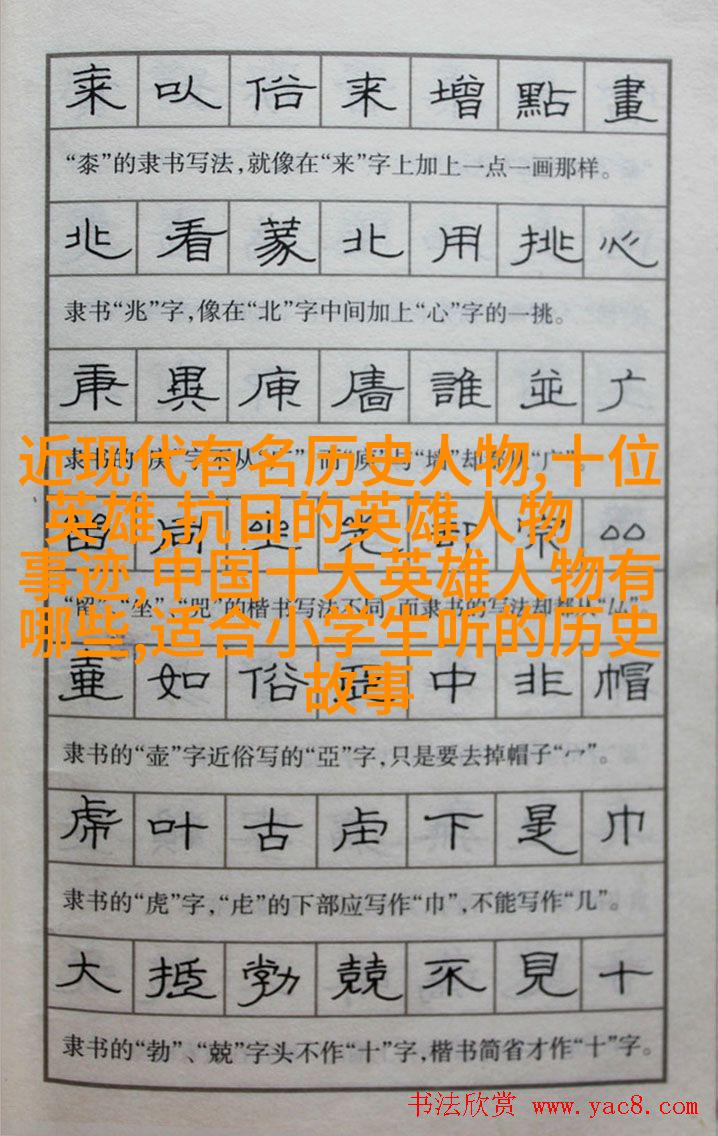 来以俗来增點畫
“桼”的隶书写法,就像在“来”字上加上一点一画那样。
兆看蒙北用挑心
隶书“兆”字,像在“北”字中间加上“心”字的一挑。
庚異庫廧誰並广
近现代有名历史人物,十位
英雄,抗日的英雄人物
事迹,中国十大英雄人物有
哪些,适合小学生听的历史
故事
如俗中非帽
隶书的“壶”字近俗写的“亞”字,只是要去掉帽子“冖”。
虎叶古虍下是巾
隶书的“虎”字,“虍”的下部应写作“巾”,不能写作“几”。
大抵勃兢不見十
隶书的“勃”、“兢”字头不作“十”字,楷书简省才作“十”字。
书法欣赏 www.yac8.com